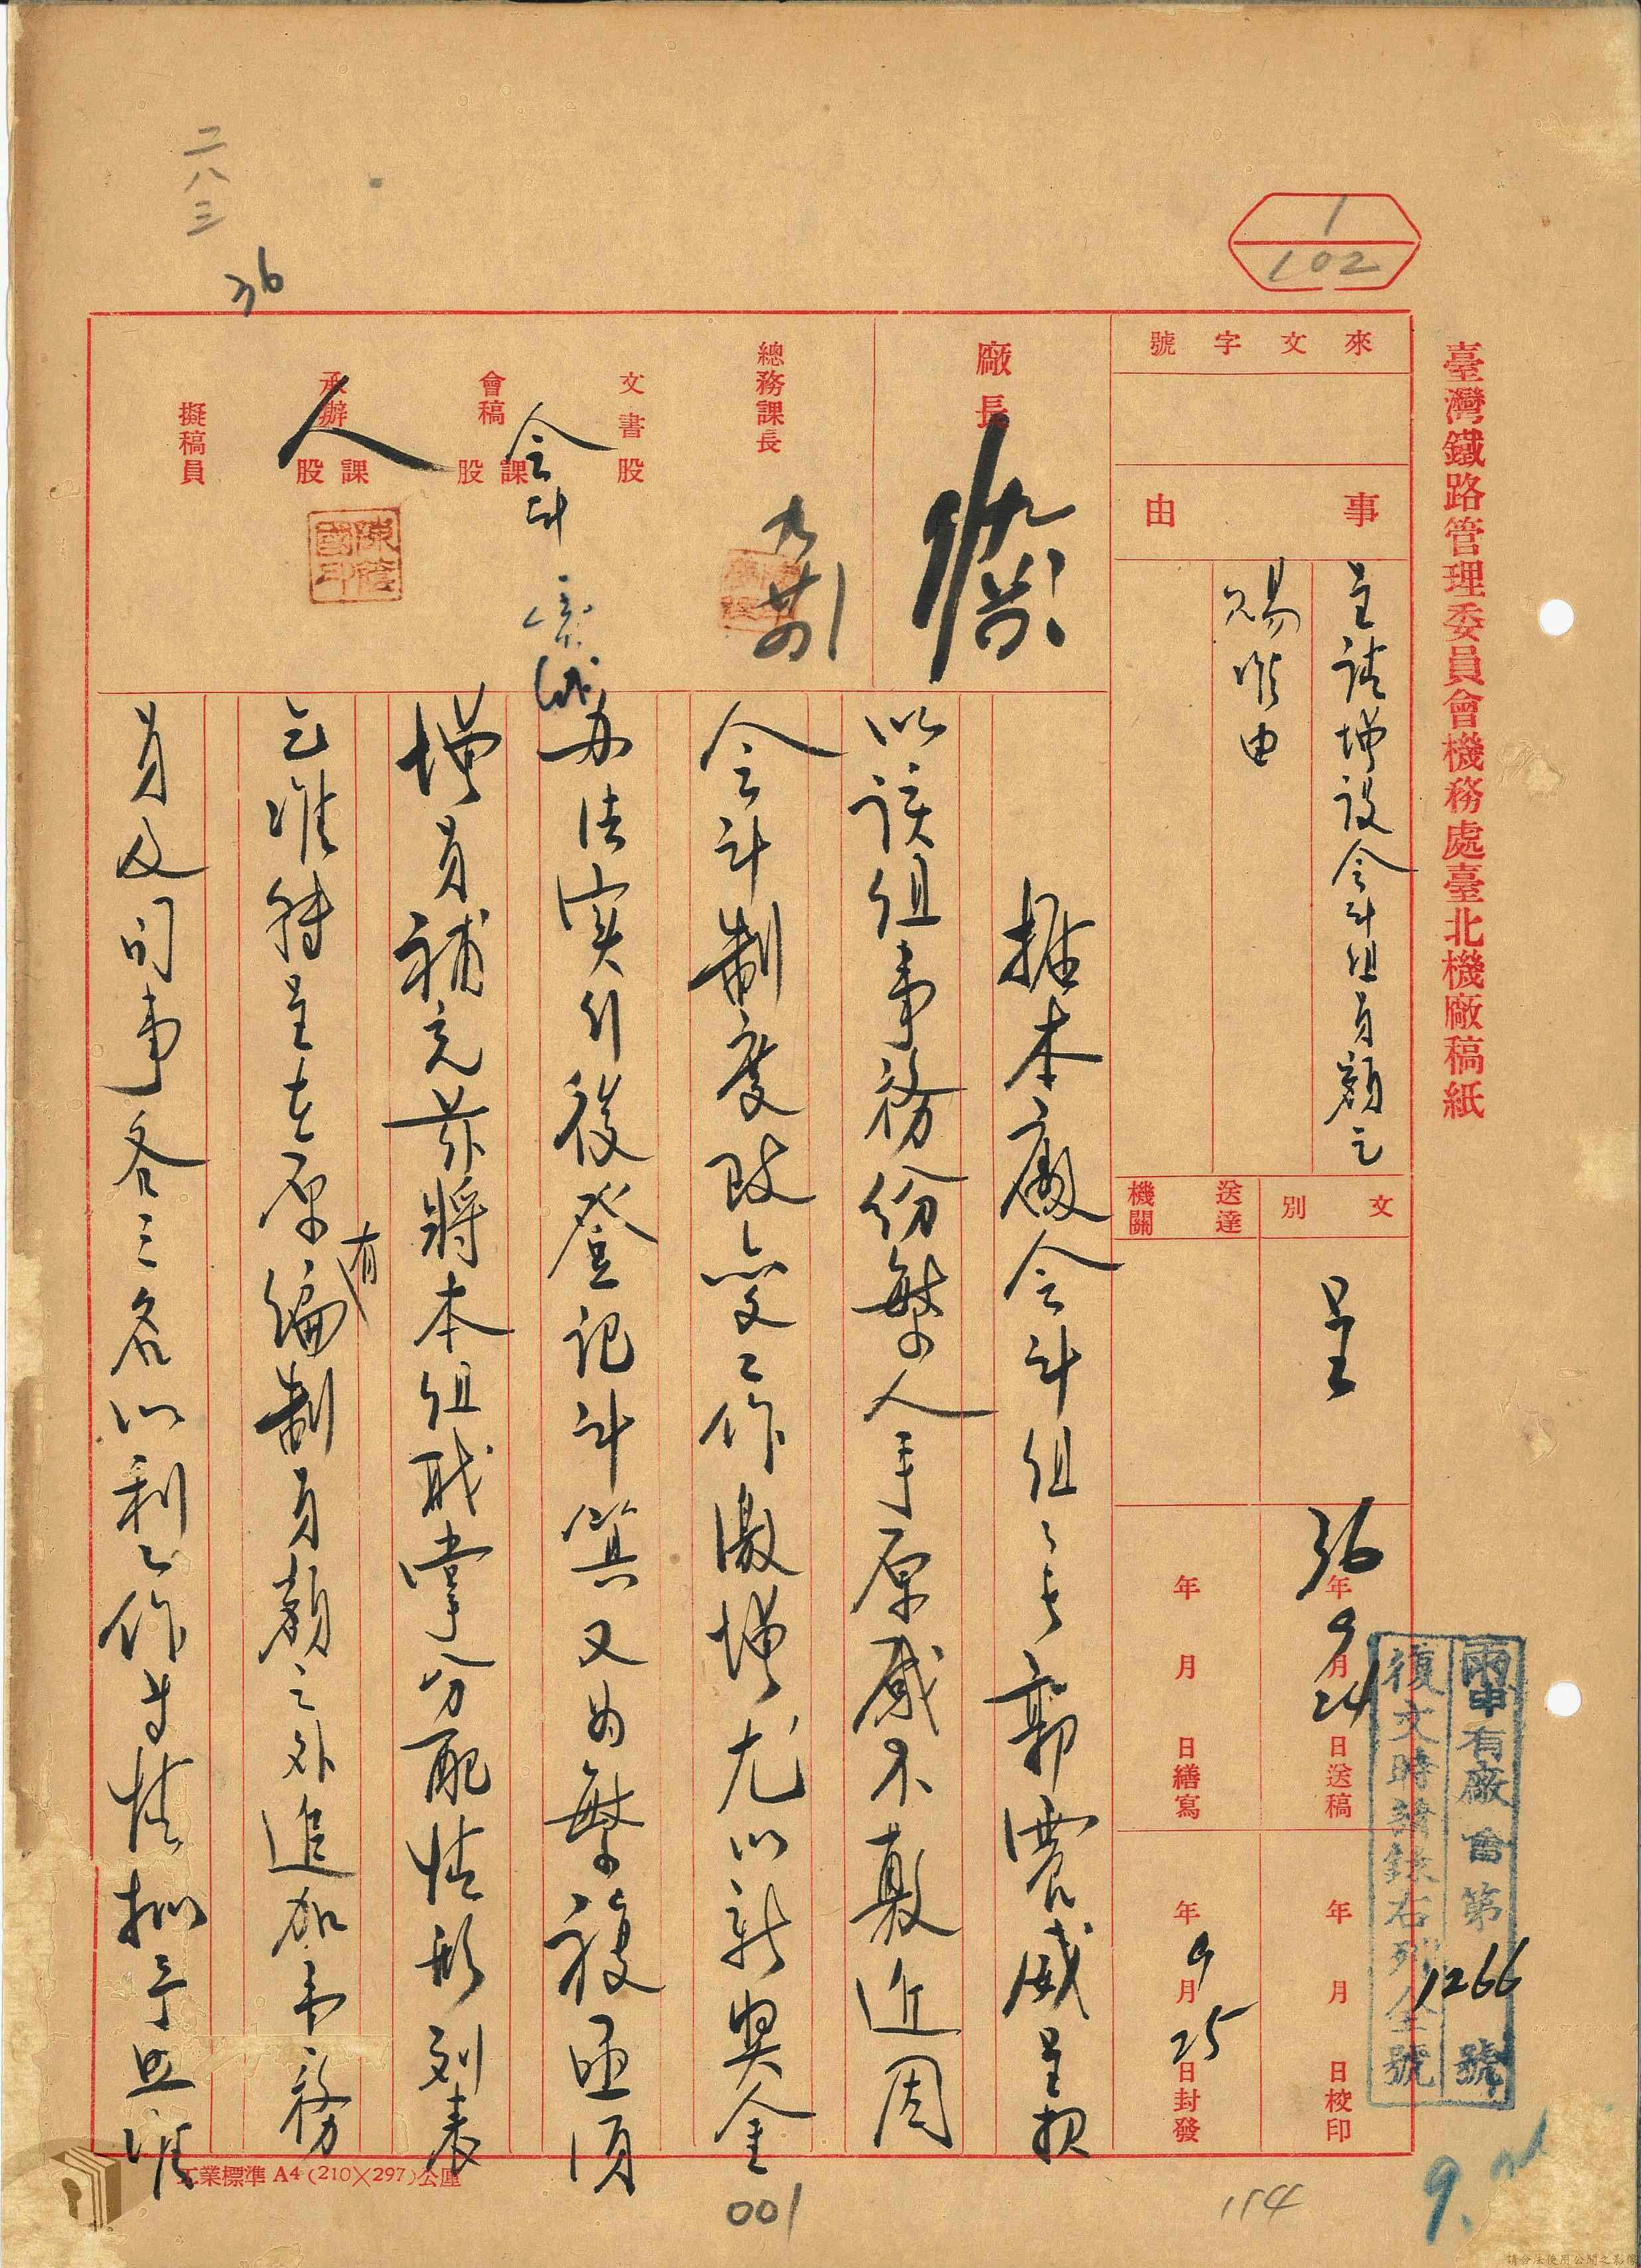 臺灣鐵路管理委員會機務處臺北機廠稿紙
1
102
二八三
36
來文字號
事由
呈請增設会計組員額乞
賜准由
文別
呈
送達機關
36年9月24日送稿
年月日繕寫
年月日校印
年9月25日封發
電申有廠會第1266號
復文時請錄右列全號
廠長
總務課長
九廿四
文書股
會稿課股
会計
承辦課股
人
擬稿員
據本廠会計組々長郭震威呈報
以該組事務份繁人手原感不敷近因
会計制度改變工作激增尤以新奨金
办法実行後登記計算又如繁複亟須
增員補充茲將本組职掌分配情形列表
乞准轉呈在原有編制員額之外追加事務
員及司事各三名以利工作等情拠予照准
工業標準A4(210×297)公厘
001
154
9.
請合法使用公開之影像